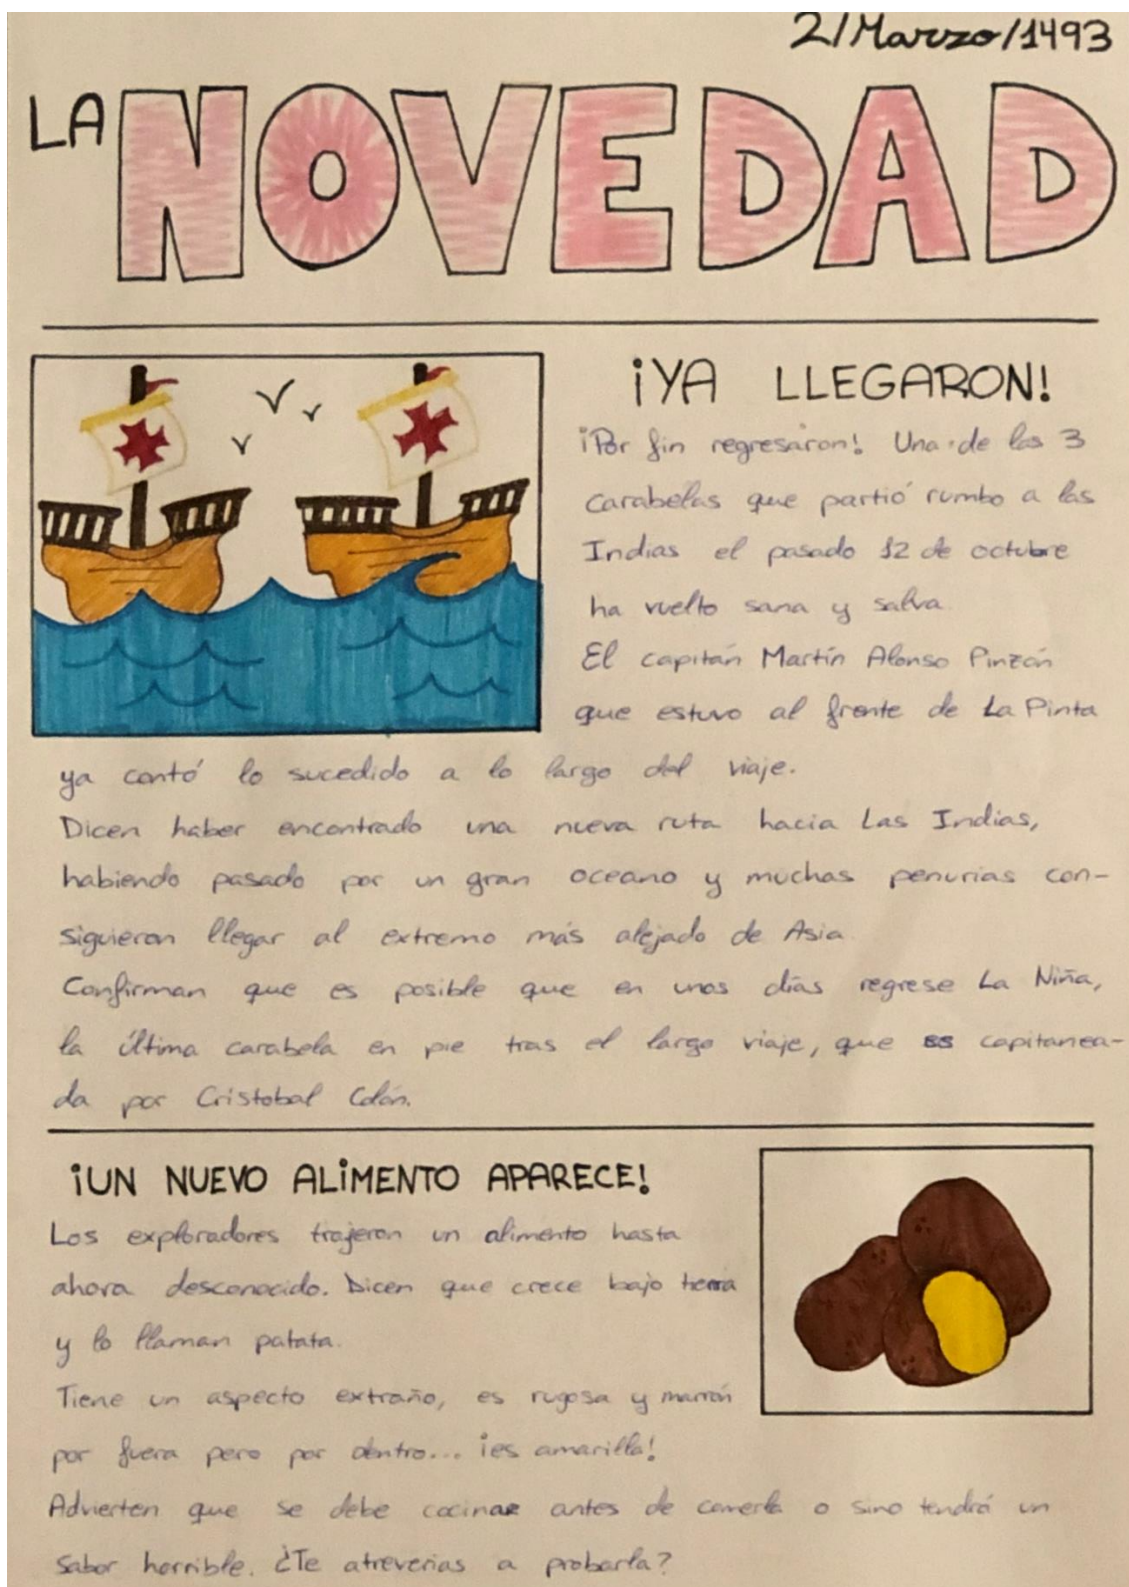 2/Marzo/1493
LA NOVEDAD
¡YA LLEGARON!
¡Por fin regresaron! Una de las 3
carabelas que partió rumbo a las
Indias el pasado 12 de octubre
ha vuelto sana y salva.
El capitán Martín Alonso Pinzón
que estuvo al frente de La Pinta
ya contó lo sucedido a lo largo del viaje.
Dicen haber encontrado una nueva ruta hacia Las Indias,
habiendo pasado por un gran oceano y muchas penurias con-
siguieron llegar al extremo más alejado de Asia.
Confirman que es posible que en unos días regrese La Niña,
la última carabela en pie tras el largo viaje, que es capitanea-
da por Cristobal Colón.
¡UN NUEVO ALIMENTO APARECE!
Los exploradores trajeron un alimento hasta
ahora desconocido. Dicen que crece bajo tierra
y lo llaman patata.
Tiene un aspecto extraño, es rugosa y marrón
por fuera pero por dentro... ¡es amarilla!
Advierten que se debe cocinar antes de comerla o sino tendrá un
sabor horrible. ¿Te atreverias a probarla?